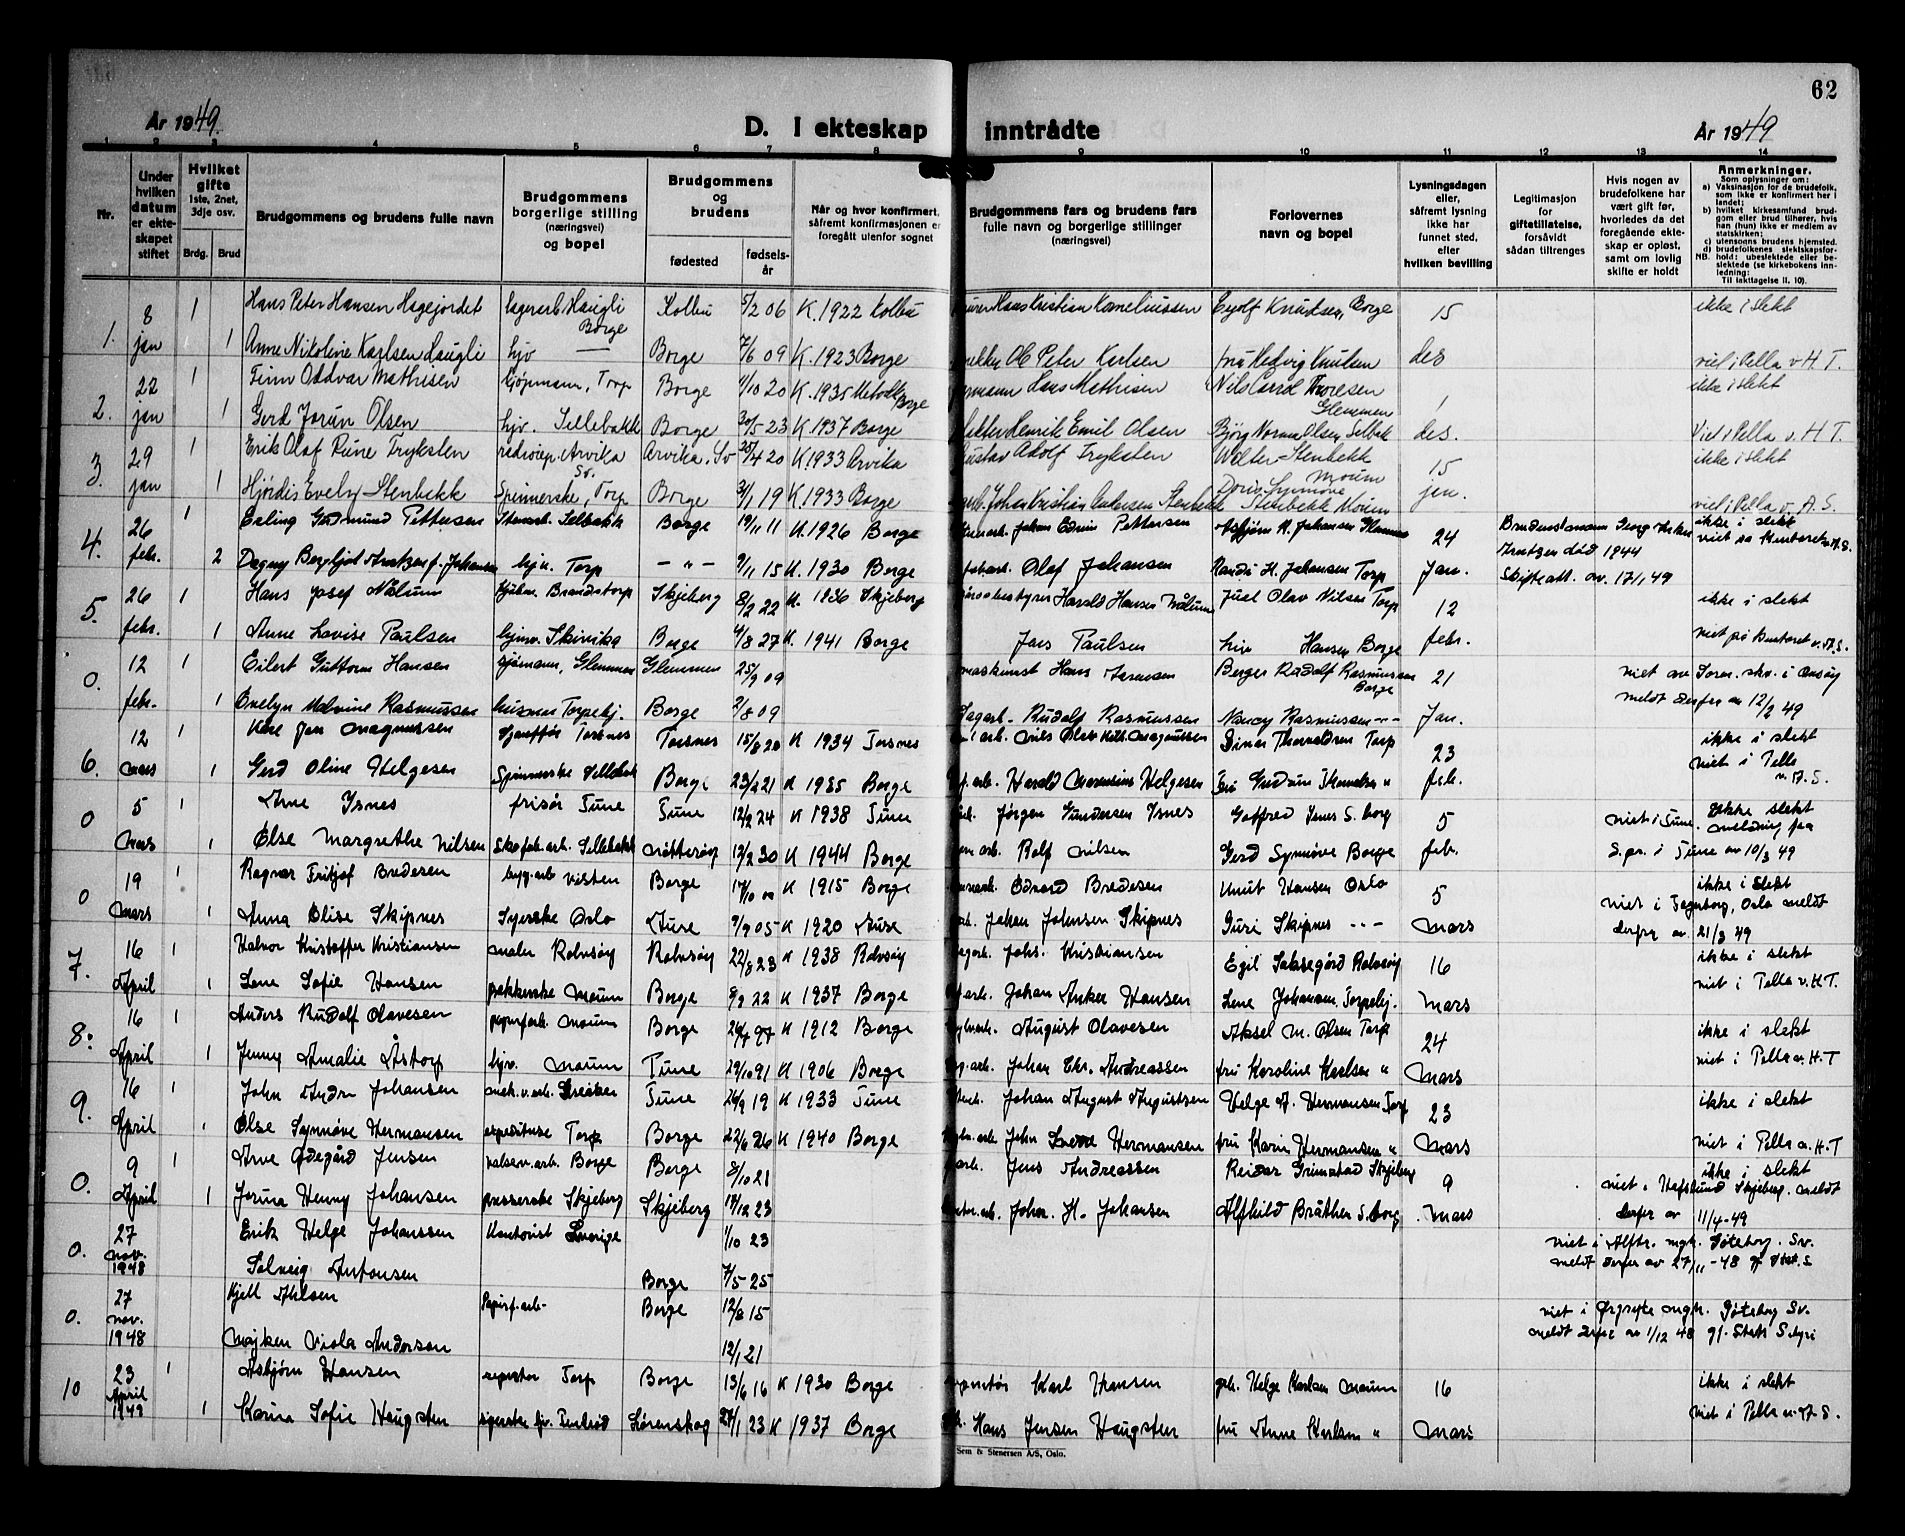 62
År 1949.
D. I ekteskap inntrådte
År 1949
1 2 3 4 5 6 7 8 9 10 11 12 13 14
Nr.
Under hvilken datum er ekteskapet stiftet
Hvilket gifte 1ste, 2net, 3dje osv.
Brdg. Brud
Brudgommens og brudens fulle navn
Brudgommens borgerlige stilling (næringsvei) og bopel
Brudgommens og brudens
fødested
fødselsår
Når og hvor konfirmert, såfremt konfirmasjonen er foregått utenfor sognet
Brudgommens fars og brudens fars fulle navn og borgerlige stillinger (næringsvei)
Forlovernes navn og bopel
Lysningsdagen eller, såfremt lysning ikke har funnet sted, eller hvilken bevilling
Legitimasjon for giftetillatelse, forsåvidt sådan tiltrenges
Hvis nogen av brudefolkene har vært gift før, hvorledes da det foregående ekteskap er opløst, samt om lovlig skifte er holdt
Anmerkninger.
Som oplysninger om:
a) Vaksinasjon for de brudefolk, som ikke er konfirmert her i landet;
b) hvilket kirkesamfund brudgom eller brud tilhører, hvis han (hun) ikke er medlem av statskirken;
c) utensogns brudens hjemsted.
d) brudefolkenes slektskapsforhold: ubeslektede eller beslektede (se kirkebokens innledning:
NB. Til iakttagelse II. 10).
1. 8 jan 1 Hans Peter Hansen Hagejordet lagerarb. Haugli Borge Kolbu 5/2 06 K. 1922 Kolbu Hans Kristian Korneliussen Eyolf Knudsen, Borge 15 ikke i slekt
1 Anne Nikoline Karlsen Haugli hjv — Borge 7/6 09 K. 1923 Borge Ole Peter Karlsen fru Hedvig Knutsen des viel i Pella v H. T.
2. 22 jan 1 Finn Oddvar Mathisen kjøpmann, Torp Borge 1/10 20 K. 1935 Metodk. Borge Hans Mathisen Thoresen Glemmen 1 ikke i slekt
1 Gerd Jorun Olsen hjv. Sellebakk Borge 30/5 23 K. 1937 Borge Henrik Emil Olsen Bjørg Norma Olsen Selbak des. Viel i Pella v. H. T.
3. 29 jan 1 Erik Olof Rune Tryksten Arvika Sv. Arvika. Sv 25/4 20 K. 1933 Arvika Gustav Adolf Tryksten Walter Stenbekk Moum 15 ikke i slekt
1 Hjørdis Evelyn Stenbekk Spinnerske, Torp Borge 3/1 19 K. 1933 Borge Johan Kristian Stenbekk Doris Synnøve Stenbekk Moum jan. viel i Pella v. A. S.
4. 26 febr. 1 Erling Gudmund Pettersen Stenarb. Selbakk Borge 19/11 11 K. 1926 Borge Johan Edvin Pettersen Asbjørn H. Johansen Glemmen 24 Brudens mann Georg ikke i slekt
2 Dagny Bergljot Arntzen f. Johansen hjv. Torp — " — 9/11 15 K. 1930 Borge Olaf Johansen Randi H. Johansen Torp Jan. Arntzen død 1944 Skifteatt. av. 17/1 49 viet på kontoret v. A. S.
5. 26 febr. 1 Hans Josef Nålum Brandstorp Skjeberg 8/2 22 K. 1936 Skjeberg Harald Hansen Nålum Juel Olav Nilsen Torp 12 ikke i slekt
1 Anne Lovise Paulsen hjmv. Skivika Borge 4/8 27 K. 1941 Borge Jens Paulsen Hansen Borge febr. viet på kontoret v. A. S.
0. 12 febr. 1 Eilert Guttorm Hansen sjømann, Glemmen Glemmen 25/9 09 Hans Sørensen Berger Rudolf Rasmussen Borge 21 viet av Soren. skv. i Onsøy
1 Evelyn Malvine Rasmussen husmor Torpebj. Borge 2/8 09 Sagarb. Rudolf Rasmussen Nancy Rasmussen -"- Jan. meldt derfra av 12/2 49
6. 12 mars 1 Kåre Magnussen Torsnes Torsnes 15/8 20 K 1934 Torsnes Nils Olav Magnussen Einar Thorvaldsen Torp 23 ikke i slekt
1 Gerd Oline Helgesen Spinnerske Sellebak Borge 23/2 21 K 1935 Borge Harald Marensius Helgesen Gudrun febr. viet i Pella v. A. S.
0 5 mars 1 Arne Isnes frisør Tune Tune 12/2 24 K 1938 Tune Jørgen Gundersen Isnes Gotfred Isnes S. borg 5 viet i Tune. Ikke slekt
1 Else Margrethe Nilsen Skofab.arb. Sellebakk Nøtterøy 12/2 30 K 1944 Borge Rolf Nilsen Gerd Synnøve Borge febr. melding fra S.pr. i Tune av 10/3 49
0 19 mars 1 Ragnar Fritjof Bredesen byg.arb Visten Borge 14/10 00 K 1915 Borge Edvard Bredesen Knut Hansen Oslo 5 ikke i slekt
1 Anna Elise Skipnes Syerske Oslo Aure 9/9 05 K 1920 Aure Johan Johnsen Skipnes Guri Skipnes -"- mars viet i Fagerborg, Oslo meldt derfra av 21/3 49
7. 16 April 1 Halvor Kristoffer Kristiansen maler Rolvsøy Rolvsøy 22/8 23 K 1938 Rolvsøy Johs. Kristiansen Egil Saksegård Rolvsøy 16 ikke i slekt
1 Lene Sofie Hansen pakkerske Moum Borge 8/9 22 K 1937 Borge Johan Anker Hansen Lene Johansen, Torpebj. mars viet i Pella v. H.T.
8. 16 April 1 Anders Rudolf Olavesen papirfarb. Moum Borge 26/7 97 K 1912 Borge August Olavesen Aksel M. Olsen Torp 24 ikke i slekt
1 Jenny Amalie Åstorp hjv. Moum Tune 29/10 91 K 1906 Borge Johan Chr. Andreassen fru Karoline Karlsen " mars viet i Pella v. H. T
9. 16 April 1 John Andor Johansen mek.v.arb. Greåker Tune 26/9 19 K 1933 Tune Johan August Augustsen Helge A. Hermansen Torp 23 ikke i slekt
1 Else Synnøve Hermansen expeditrise Torp Borge 22/6 26 K 1940 Borge John Hermansen fru Karin Hermansen " mars viet i Pella v. H. T
0. 9 April 1 Arne Ødegård Jensen valsev.arb. Borge Borge 8/10 21 Jens Andreassen Reidar Grimstad Skjeberg 9 ikke i slekt
1 Jorunn Henny Johansen presserske Skjeberg Skjeberg 14/12 23 Johan H. Johansen Alfhild Bråthen S. borg mars viet i Hafslund Skjeberg. meldt derfra av 11/4-49
0. 27 nov. 1948 Erik Helge Johanssen Kontorist Sverige 1/10 23 viet i mgh. Gøteborg. Sv.
Solveig Antonsen Borge 7/5 25 meldt derfra av 27/11-48
0. 27 nov. 1948 Kjell Ahlsen Papirf.arb. Borge 12/8 15 viet i Ørgryte mgh. Gøteborg Sv.
Majken Viola Anderson 12/1 21 meldt derfra av 1/12 48 gj. Stat. S.byrå
10 23 April 1949 1 Asbjørn Hansen reparatør Torp Borge 13/6 16 K 1930 Borge Karl Hansen grb. Helge Karlsen Moum 16 ikke i slekt
1 Karin Sofie Haugsten Lørenskog 27/1 23 K 1937 Borge Hans Jensen Haugsten fru Anne Karlsen " mars viet i Pella v. A. S.
Sem & Stenersen A/S, Oslo.